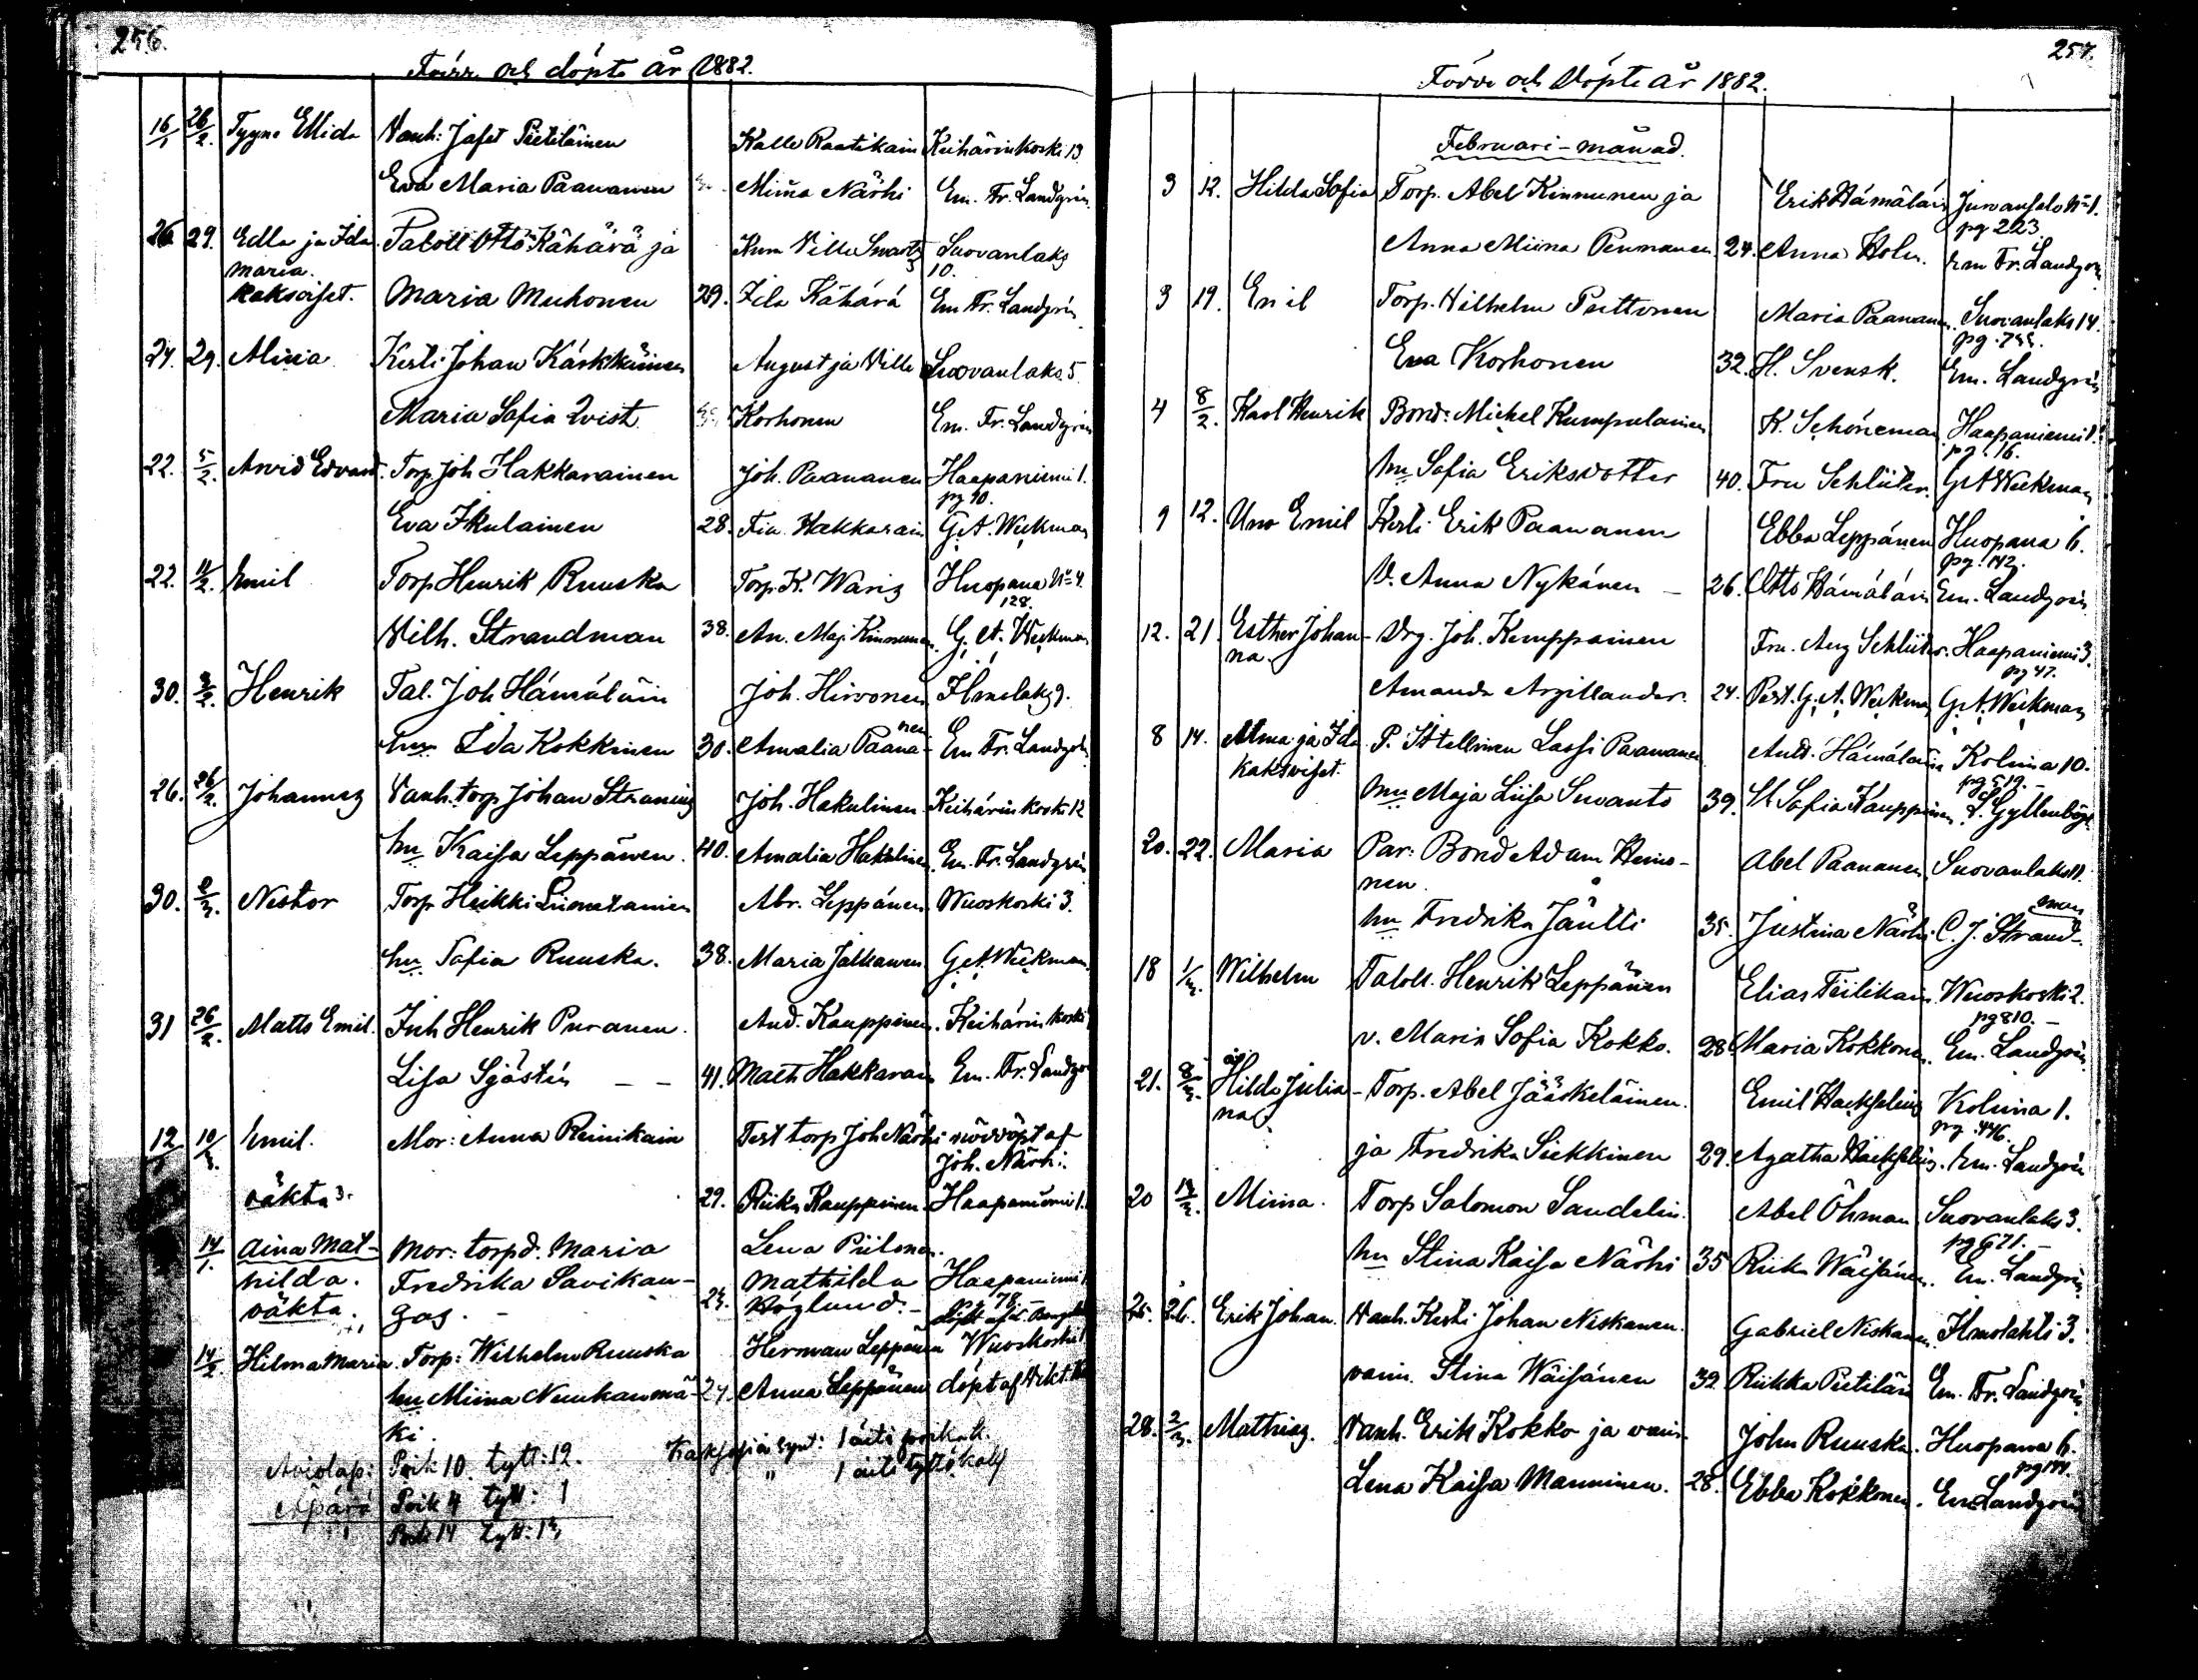 256.
Födde och döpte år 1882.
16/1 26/2. Tyyne Ellida Vanh: Jafet Pietiläinen Kalle Raatikain Keihärinkoski 13
Eva Maria Paananen Miina Närhi Em. Fr. Landgrén
26 29. Edla ja Ida Taloll Otto Kähärä ja Ville Swartz Suovanlaks
Maria. 10.
kaksoiset. Maria Muhonen 29. Ida Kähärä Em Fr. Landgrén
27. 29. Miina Kesti Johan Kärkkäinen August ja Ville Suovanlaks 5.
Maria Sofia Qvist Korhonen Em. Fr. Landgrén
22. 5/2. Arvid Edvard. Torp. Joh Hakkarainen Joh. Paananen Haapaniemi 1.
pg 10.
Eva Ikulainen 28. Fia. Hakkarain G. A. Weckman
22. 11/2. Emil Torp Henrik Ruuska Torp. K. Waris Huopana No 4.
128.
Vilh. Strandman 38. An. Maj. Kinnunen G. A. Weckman
30. Henrik Tal. Joh Hämäläin Joh. Hirvonen Ilmolaks 9.
hu Ida Kokkinen 30. Amalia Paananen Em Fr. Landgrén
26. 26/2. Johannes Vanh. torp Johan Straning Joh. Hakulinen Keihärinkoski 12
hu Kaisa Leppänen. 40. Amalia Hakulinen Em. Fr. Landgrén
30. Nestor Torp Heikki Liimatainen Abr. Leppänen Wuoskoski 3.
hu Sofia Ruuska. 38. Maria Jalkanen G. A. Weckman
31 26/2. Matts Emil. Inh Henrik Puranen. And. Kauppinen. Keihärinkoski
Lisa Sjöstén – – 41. Math Hakkarain Em. Fr. Landgr
12 10 Emil. Mor: Anna Reinikain Test torp Joh Närhi nöddöpt af
Joh. Närhi.
oäkta 29. Riika Kauppinen. Haapaniemi 1.
14/1. Aina Mat- Mor: torpd. Maria Lena Piilonen.
hilda. Fredrika Savikan- Mathilda Haapaniemi
oäkta. gas. – 23. Höglund. – pg 78
14/2. Hilma Maria. Torp: Wilhelm Ruuska Herman Leppänen Wuoskoski
hu Miina Nuukanmä- 27. Anna Leppänen döpt af
ki.
Aviolaps: Poik 10. tytt: 12. Kaksosia synt: 1 äiti poikalt.
Äpärä Poik 4 tytt: 1 " 1 äiti tyttökalt
Poik 14 tytt: 13,
257.
Födde och Döpte år 1882.
Februari-månad.
3 12. Hilda Sofia Torp. Abel Kinnunen ja Erik Hämäläin Juovansalo No 1.
pg 223
Anna Miina Penmanen 24. Anna Holm. Em Fr. Landgrén
3 19. Emil Torp. Vilhelm Puttonen Maria Paananen. Suovanlaks 14.
Eva Korhonen 32. H. Svensk. Em. Landgrén
4 8/2. Karl Henrik Bond: Michel Kumpulainen K. Schöneman Haapaniemi 1.
pg. 16.
hu Sofia Eriksdotter 40. Fru Schlüter. G A Weckman
9 12. Uno Emil Kesti. Erik Paananen Ebba Leppänen Huopana 6.
pg. 142.
V. Anna Nykänen – 26. Otto Hämäläin Em. Landgrén
12. 21. Esther Johan- Drg. Joh. Kemppainen Fru. Aug Schlüter. Haapaniemi 3.
na. pg 47.
Amanda Argillander. 24. Past. G. A. Weckman G. A. Weckman
8 14. Alma ja Ida P. Itsellinen Lassi Paananen And. Hämäläin Kolima 10.
kaksoiset. pg 519. –
hu Maja Liisa Suvanto 39. Sofia Kauppinen L. Gyllenbög
20. 22. Maria Par: Bond Adam Heino- Abel Paananen Suovanlaks 11.
nen.
hu Fredrika Jäntti 35. Justina Närhi. C. J. Strandman
18 Wilhelm Taloll. Henrik Leppänen Elias Tiilikain Wuoskoski 2.
pg 810. –
v. Maria Sofia Kokko. 28. Maria Kokkonen. Em. Landgrén
21. Hilda Julia- Torp. Abel Jääskeläinen. Emil Hackselius Kolima 1.
na. pg. 446.
ja Fredrika Siekkinen 29. Agatha Hackselius. Em. Landgrén
20 Miina. Torp Salomon Sandelin. Abel Öhman Suovanlaks 3.
pg 671. –
hu Stina Kaisa Närhi 35 Riika Wäisänen. Em. Landgrén
25. 26. Erik Johan. Vanh. Kesti Johan Niskanen. Gabriel Niskanen. Ilmolahti 3.
vaim. Stina Wäisänen 32 Riikka Pietiläin Em. Fr. Landgrén
28. Mathias. Vanh. Erik Kokko ja vaim. John Ruuska. Huopana 6.
pg 144.
Lena Kaisa Manninen. 28. Ebba Kokkonen. Em Landgrén